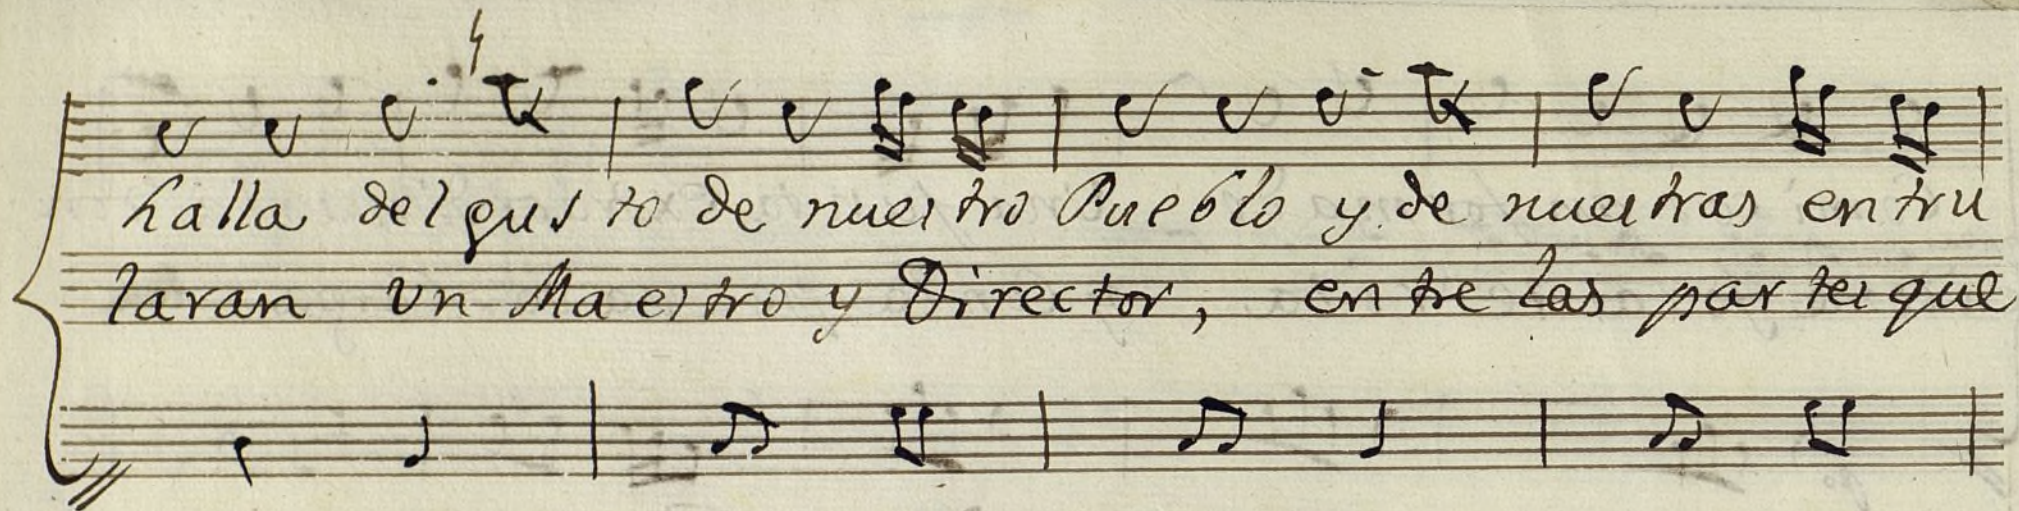 halla del gusto de nuestro Pueblo y de nuestras entru
laran un Maestro y Director, entre las partes que